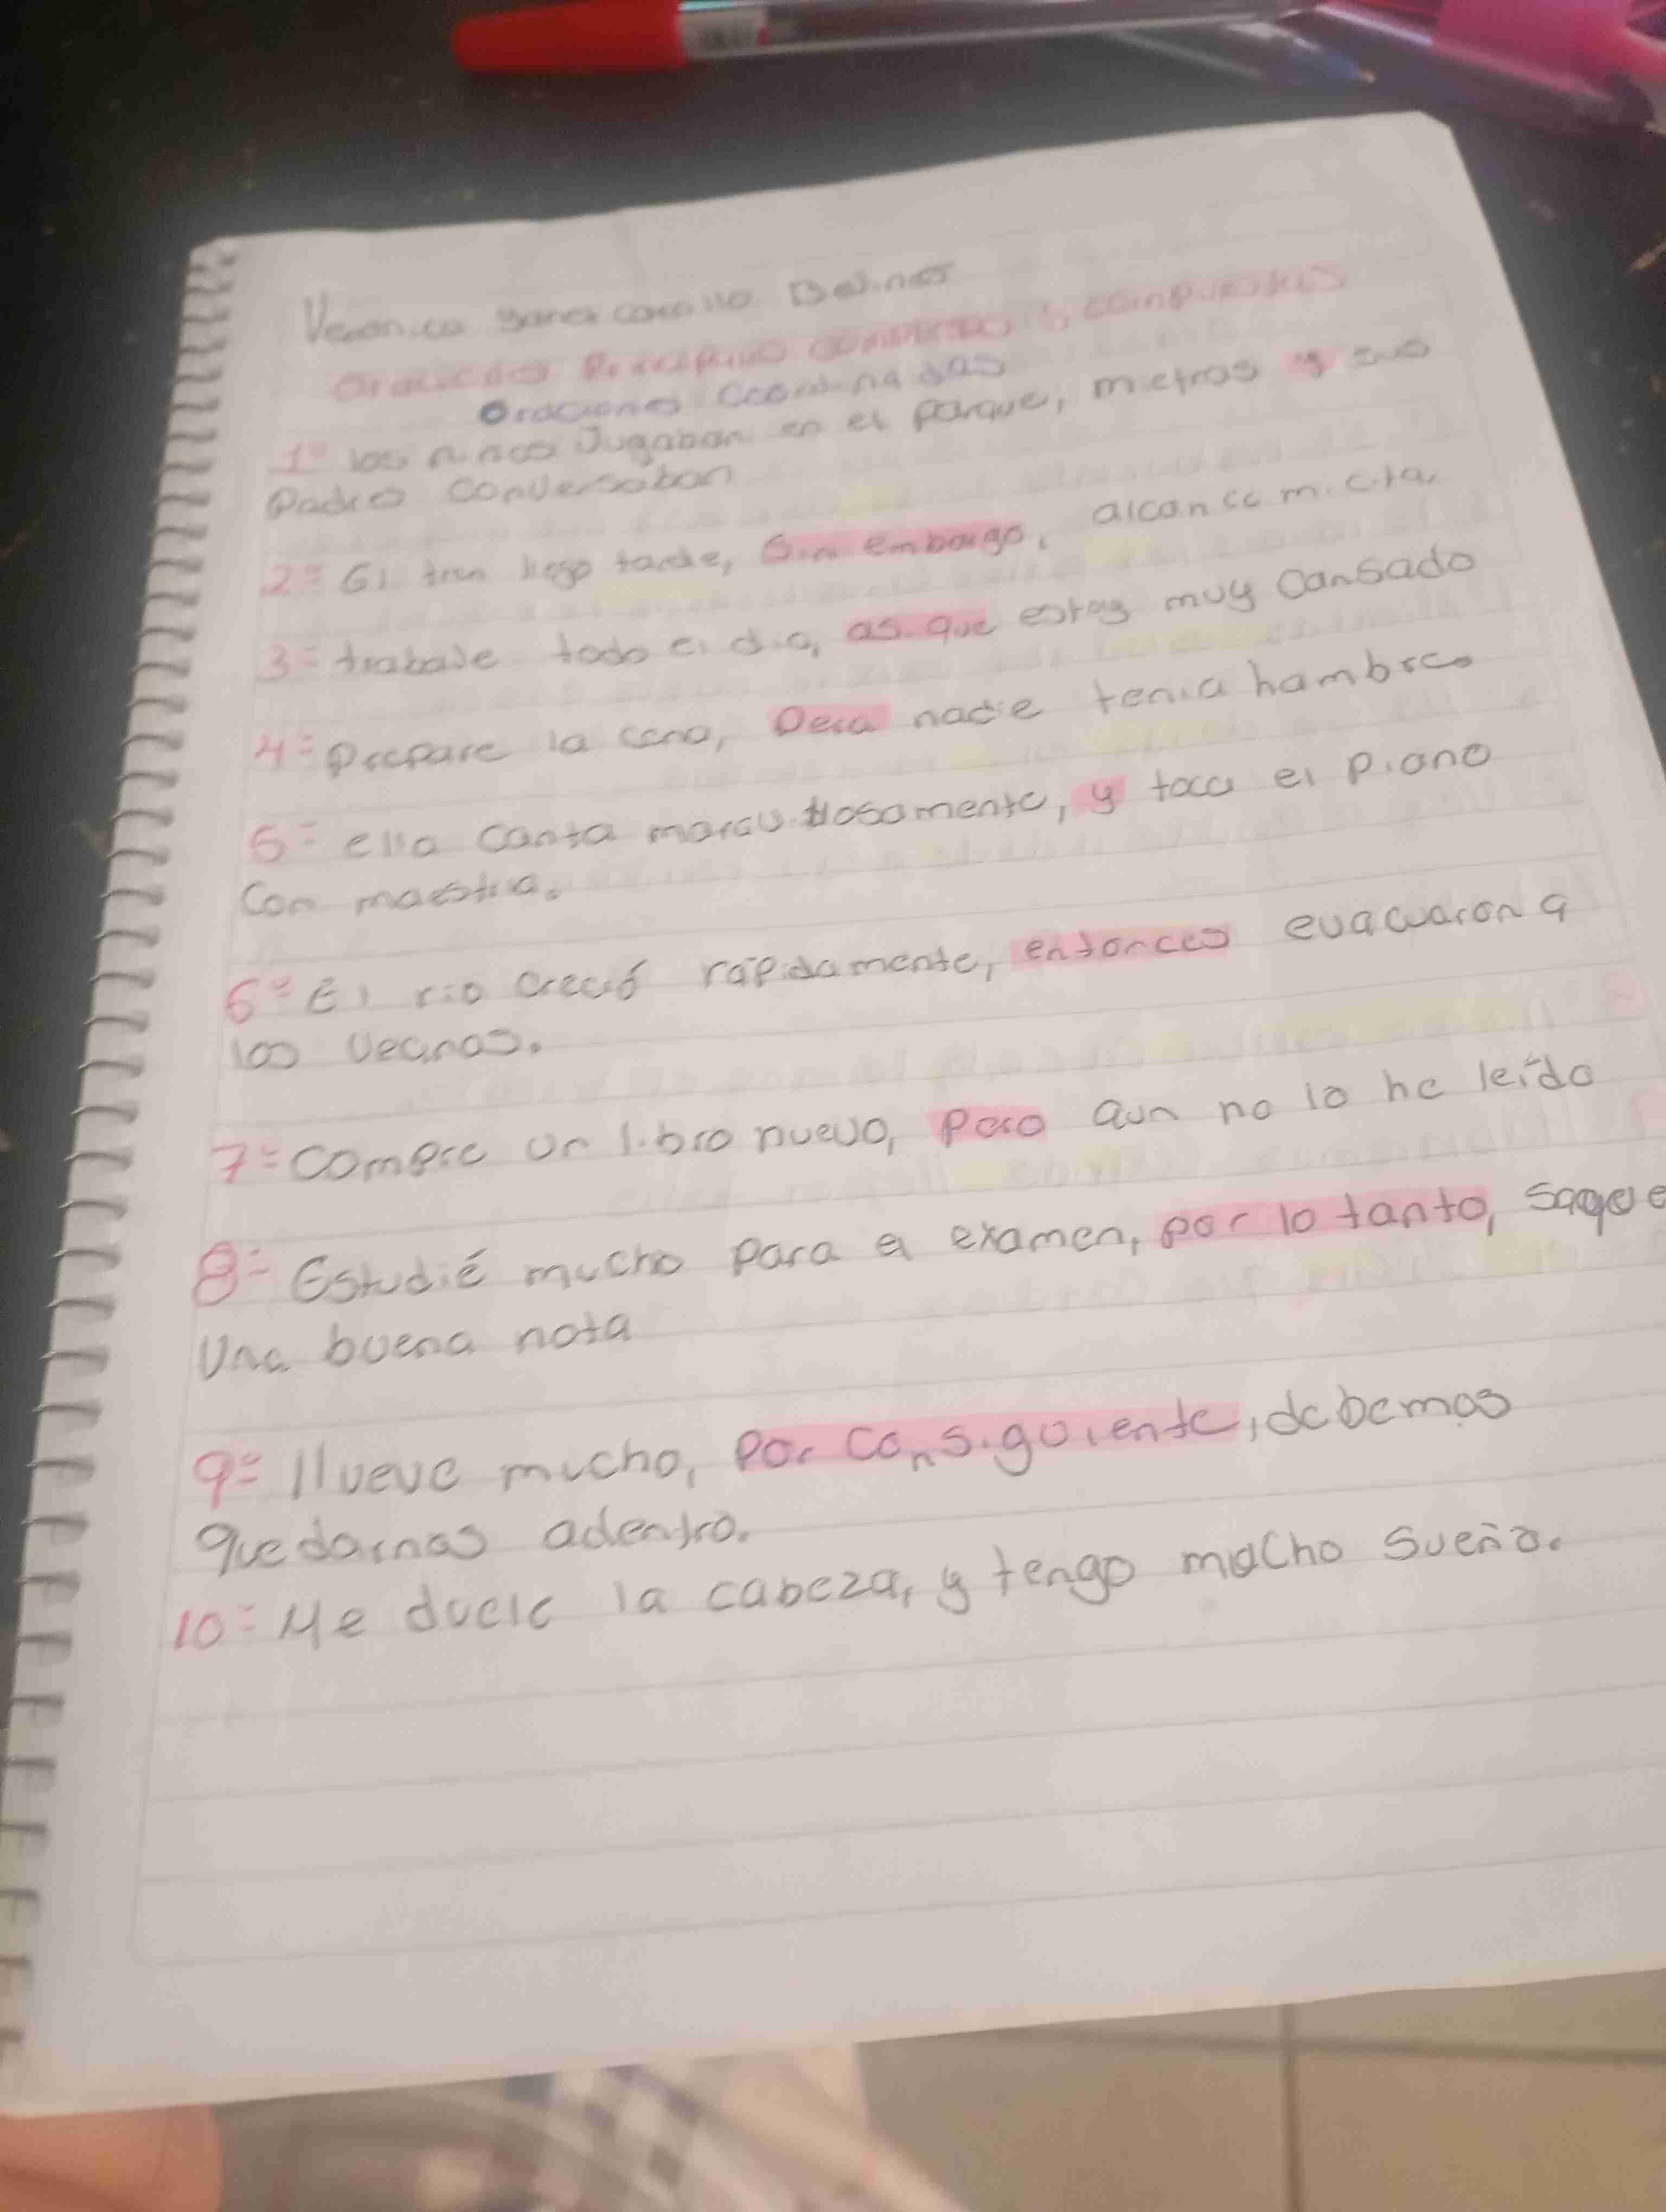 Veronica Yanet Bolinos
Oraciones y compuestas
Oraciones coordinadas
1º los niños Jugaban en el parque, mietros y sus
Padres conversaban
2= El tren llego tarde, Sin embargo, alcance mi cita.
3= trabaje todo el dia, asi que estoy muy Cansado
4= prepare la cena, Pero nadie tenia hambre.
5= ella canta maravillosamente, y toca el piano
Con maestria.
6= El rio creció rápidamente, entonces evacuaron a
los vecinos.
7= compre un libro nuevo, pero aun no lo he leído
8= Estudié mucho para el examen, por lo tanto, saque
Una buena nota
9= llueve mucho, Por consiguiente, debemos
quedarnos adentro.
10= Me duele la cabeza, y tengo mucho sueño.